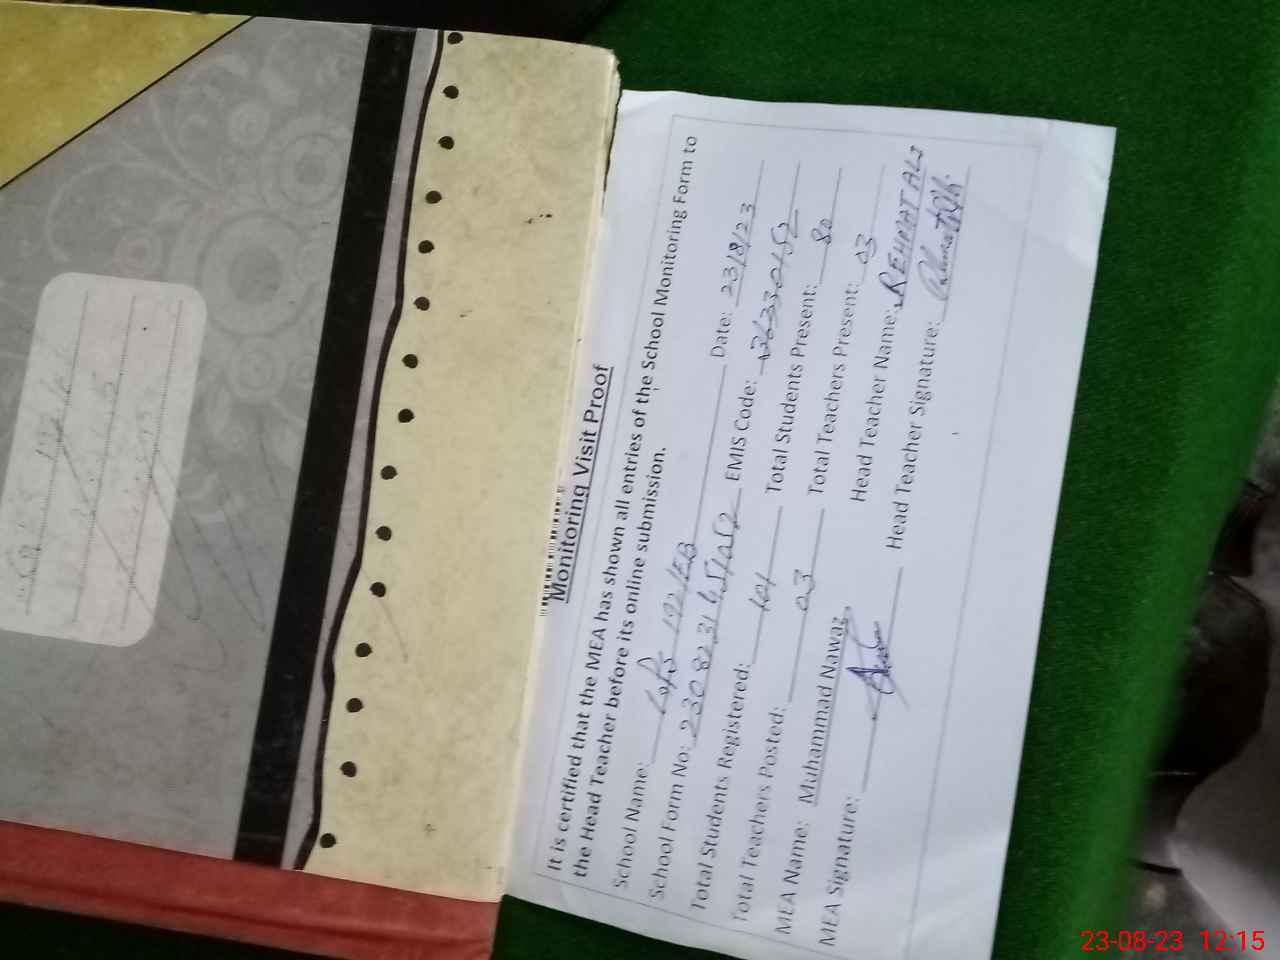 Monitoring Visit Proof
It is certified that the MEA has shown all entries of the School Monitoring Form to
the Head Teacher before its online submission.
School Name: 192/EB Date: 23/8/23
School Form No: EMIS Code: 36330152
Total Students Registered: 101 Total Students Present: 80
Total Teachers Posted: 03 Total Teachers Present: 03
MEA Name: Muhammad Nawaz Head Teacher Name: REHMAT ALI
MEA Signature: Head Teacher Signature:
23-08-23 12:15